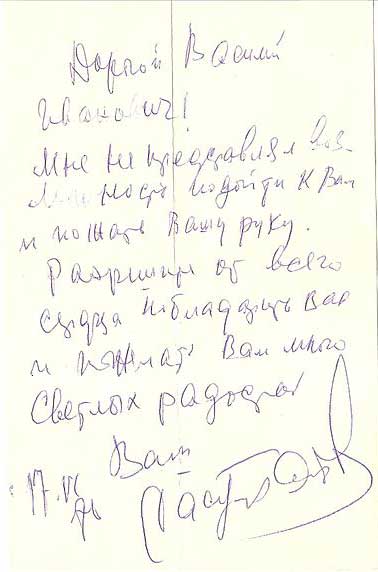 Дорогой Василий
Иванович!
Мне не представлял воз-
можность подойти к Вам
и пожать Вашу руку.
Разрешите от всего
сердца поблагодарить Вас
и пожелать Вам много
светлых радостей
Ваш
17.VI
76